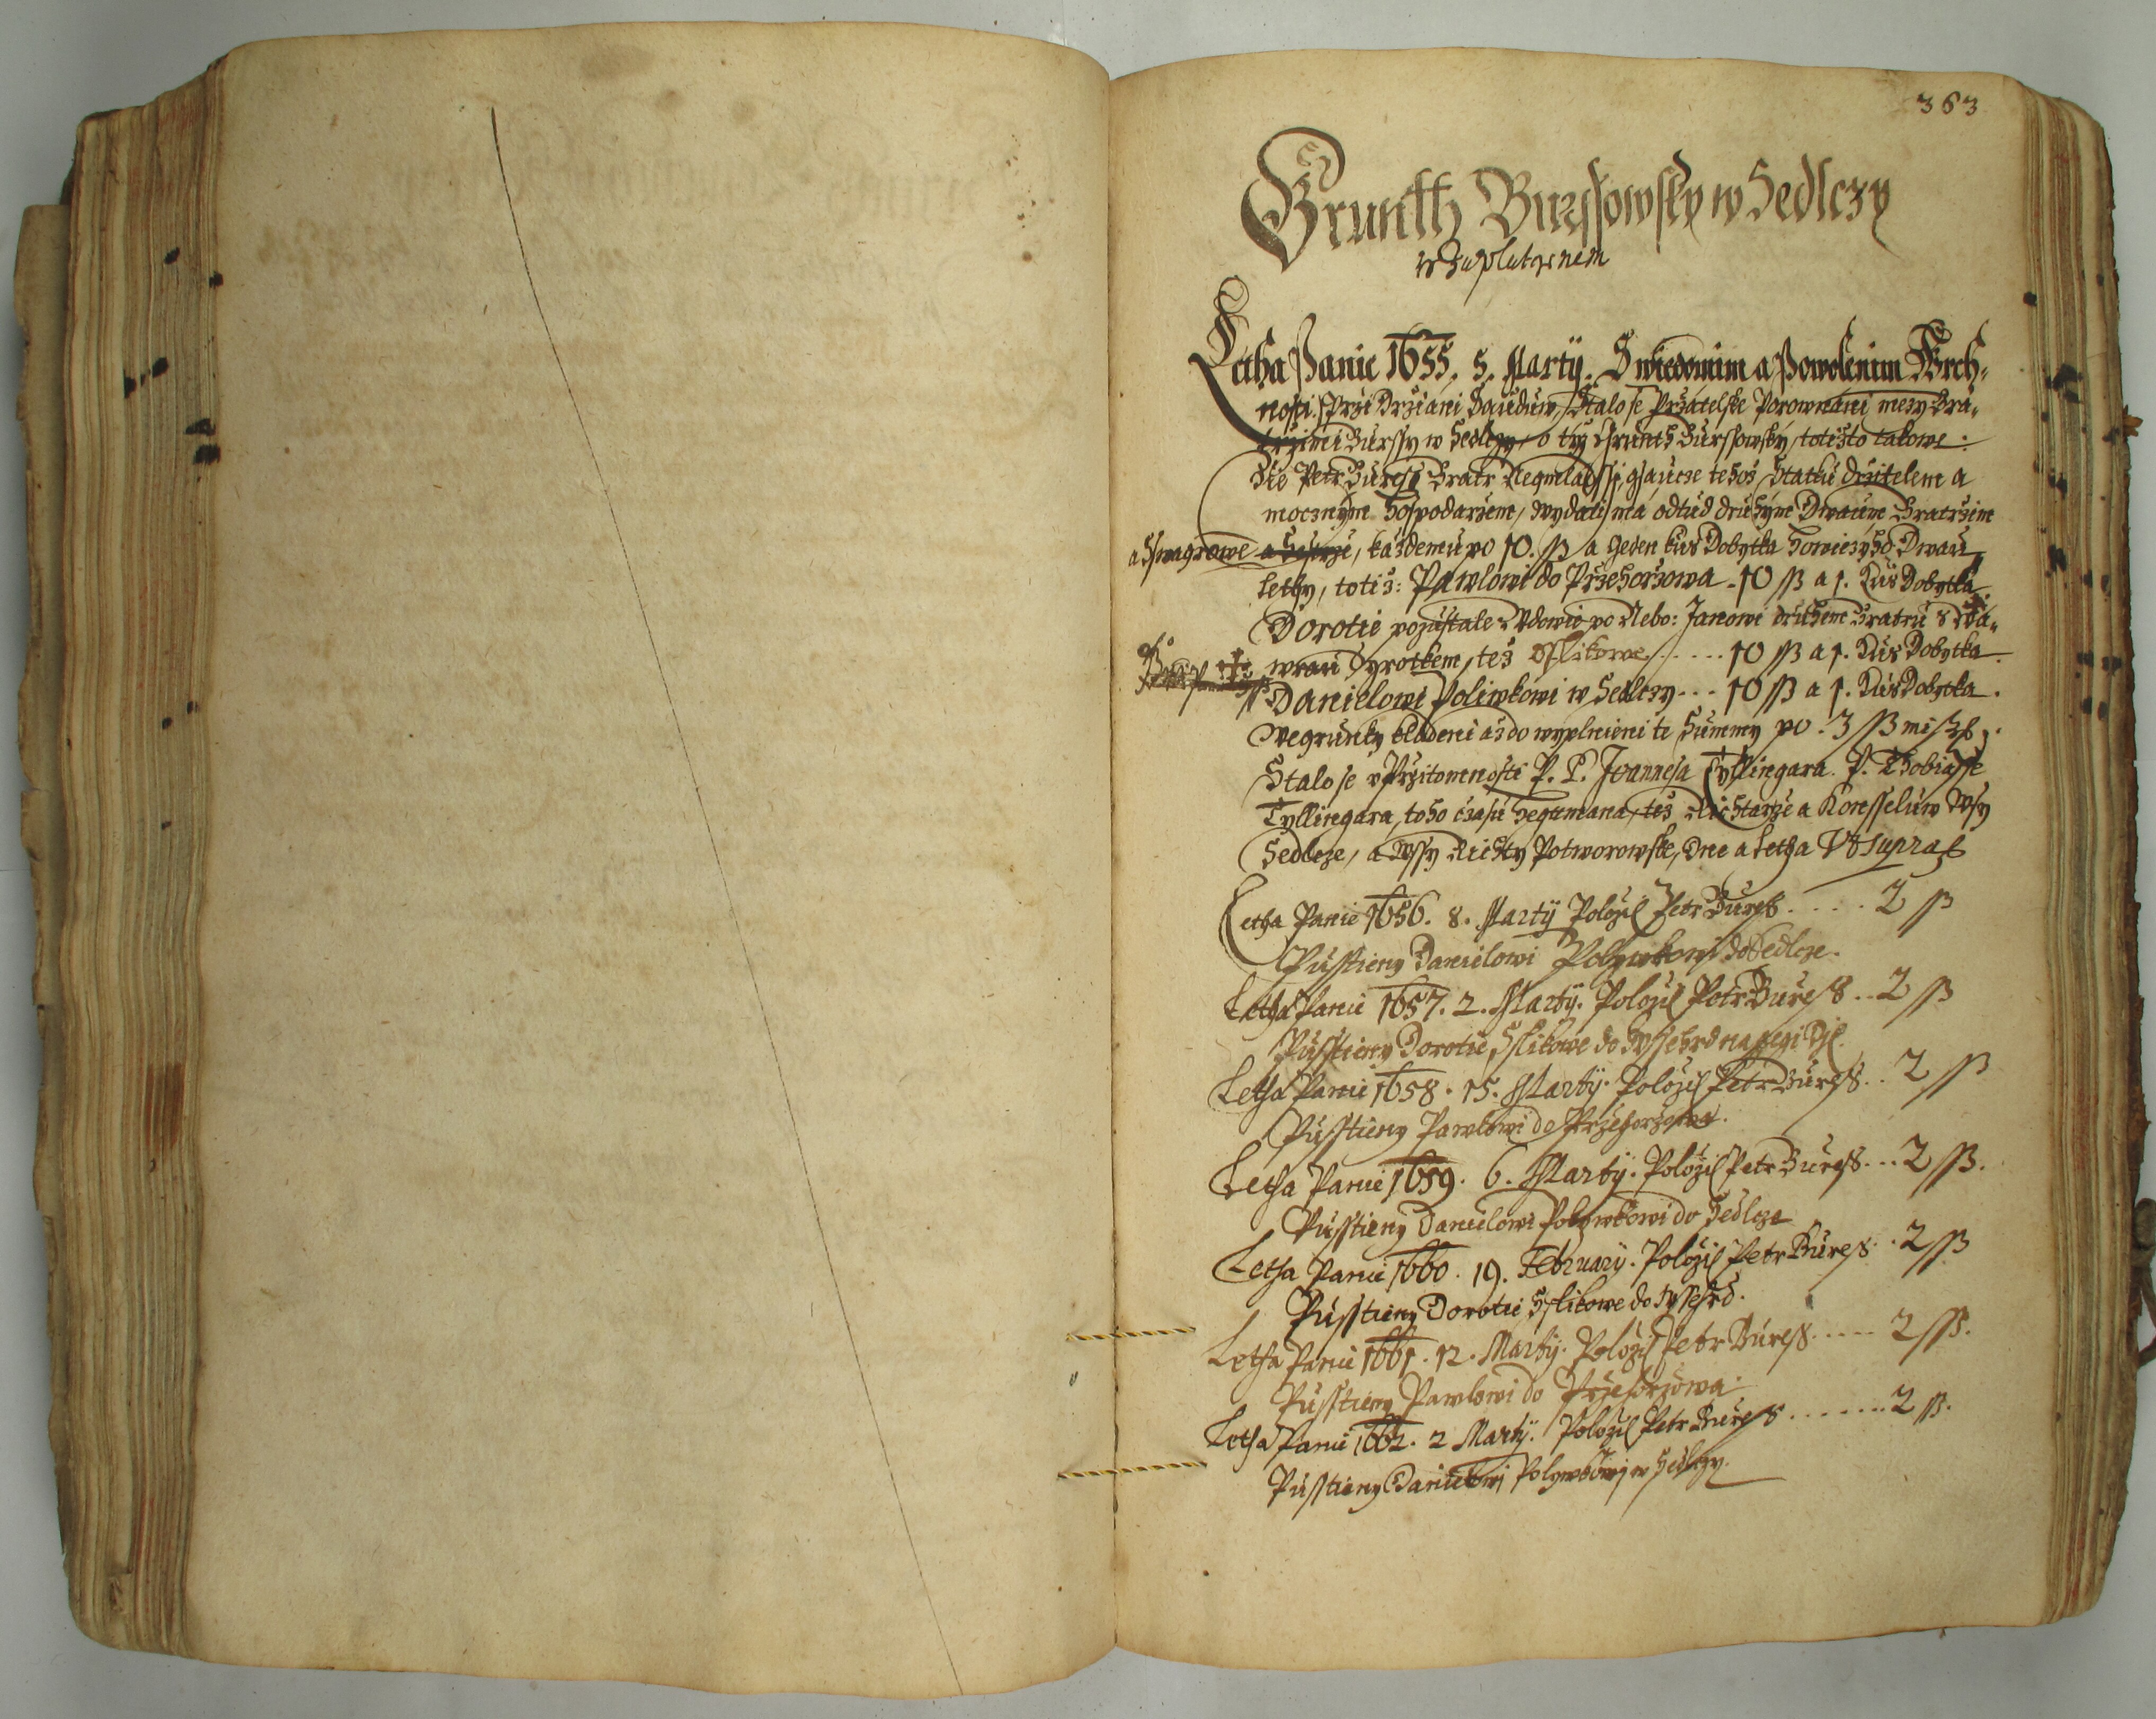 363
Grunth Burssowsky w Sedlczy
w Zaplatzenem
Letha Panie 1655. 5. Martÿ. S wiedomim a Powolenim Wrch-
nosti. Przi Drziani Saudůw, Stalo se Przatelske Porownani mezy Bra-
trzimi Burssy w Sedlczy, o tÿ Grunth Burssowskÿ, totižto takowe:
Že Petr Buress Bratr Negmladssi, gsaucze tehož Statku držitelem a
mocznÿm Hospodarzem, wydati ma odtud druhÿm Dwaum Bratrzim
a Sswagrowe a Sestrze, každemu po 10. ß a geden kus Dobytka Howiezyho Dwau
letky, totiž: Pawlowi do Przehorzowa - 10 ß a 1. Kus Dobytka.
Dorotie pozustale Wdowie po Nebo: Janowi druhem Bratru s Dwa-
wrau Syrotkem, též Sslikowe ..... 10 ß a 1. Kus Dobytka.
Danielowi Poliwkowi w Sedlczy - - - 10 ß a 1. Kus Dobytka.
Wegrunky kladeni až do wyplnieni te Summy po 3 ß miss.
Stalo se v Przitomnosti P. P. Joannesa Tyllingara. P. Thobiasse
Tyllingara, toho času Hegtmana, též Richtarze a Konsseluw Wsy
Sedlcze, a Wssy Richty Potworowske, Dne a Letha Vt supra
Letha Panie 1656. 8. Martÿ Položil Petr Buress . . . . 2 ß
Pusstieny Danielowi Polywkowi do Sedlcze.
Letha Panie 1657. 2. Martÿ. Položil Petr Buress .. 2 ß
Pusstieny Dorotie Sslikowe do Wssehrd na gegi Dÿl.
Letha Panie 1658. 15. Martÿ. Položil Petr Buress .. 2 ß
Pusstieny Pawlowi do Przehorzowa.
Letha Panie 1659. 6. Martÿ. Položil Petr Buress ... 2 ß.
Pusstieny Danielowi Polywkowi do Sedlcze
Letha Panie 1660. 19. February. Položil Petr Buress .. 2 ß
Pusstieny Dorotie Sslikowe do Wssehrd.
Letha Panie 1661. 12. Martÿ. Položil Petr Buress ..... 2 ß.
Pusstieny Pawlowi do Przehorzowa.
Letha Panie 1662. 2 Martÿ. Položil Petr Buress ....... 2 ß.
Pusstieny Danielowi Polywkowi w Sedlczy.